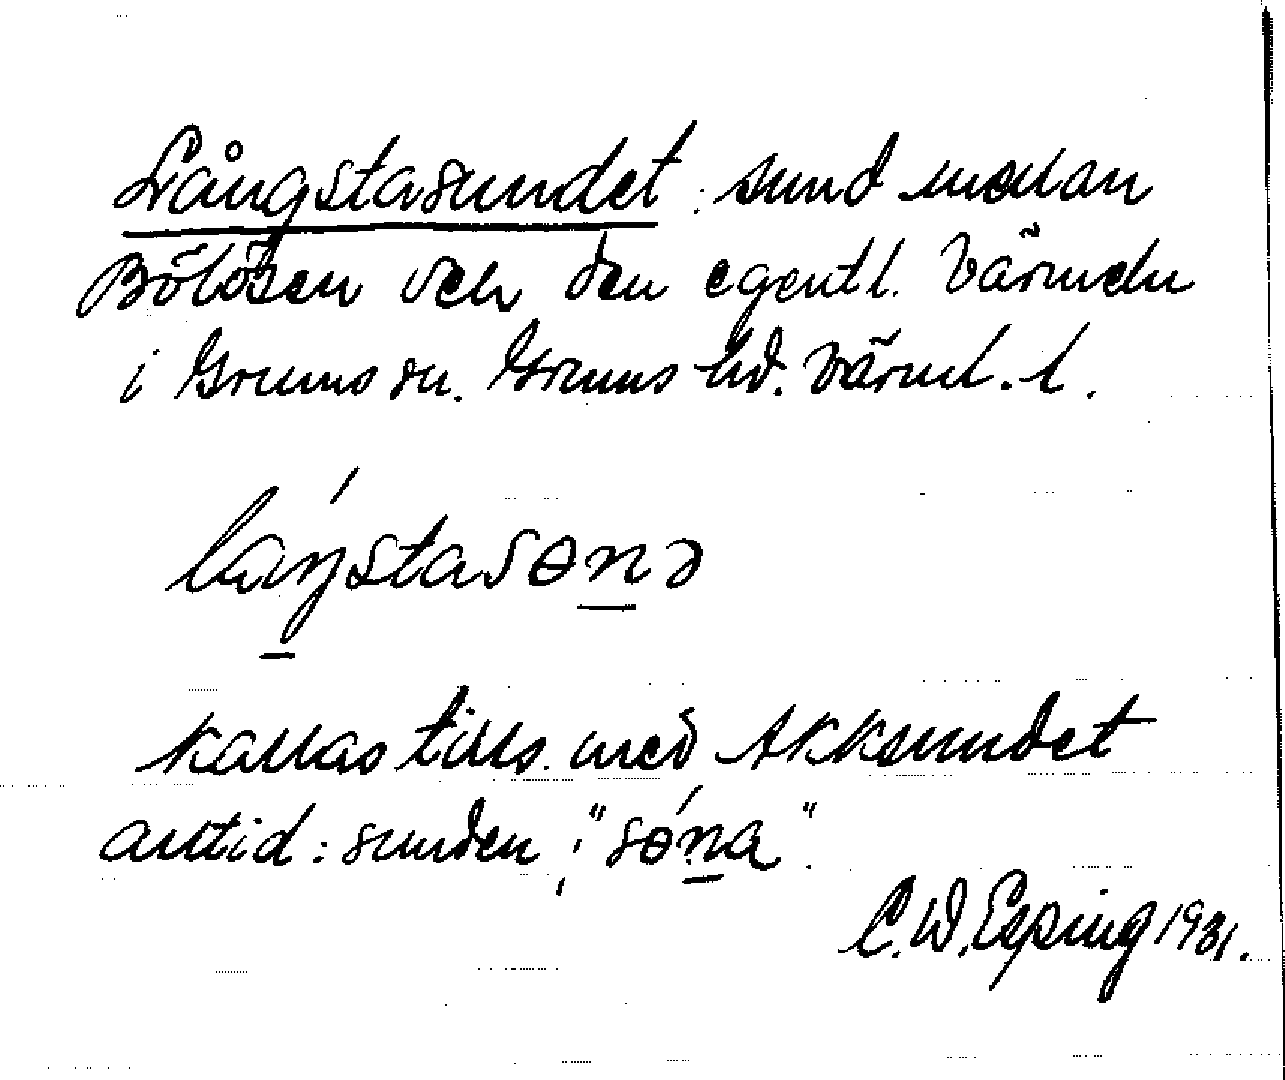 Långstasundet: sund mellan
Bölösen och den egentl. Värmeln
i Grums sn. Grums hd. Värml. l.
laŋ́stasɵnə
kallas tills. med Akksundet
alltid: sunden ; "sɵ́na".
C. W. Esping 1931.